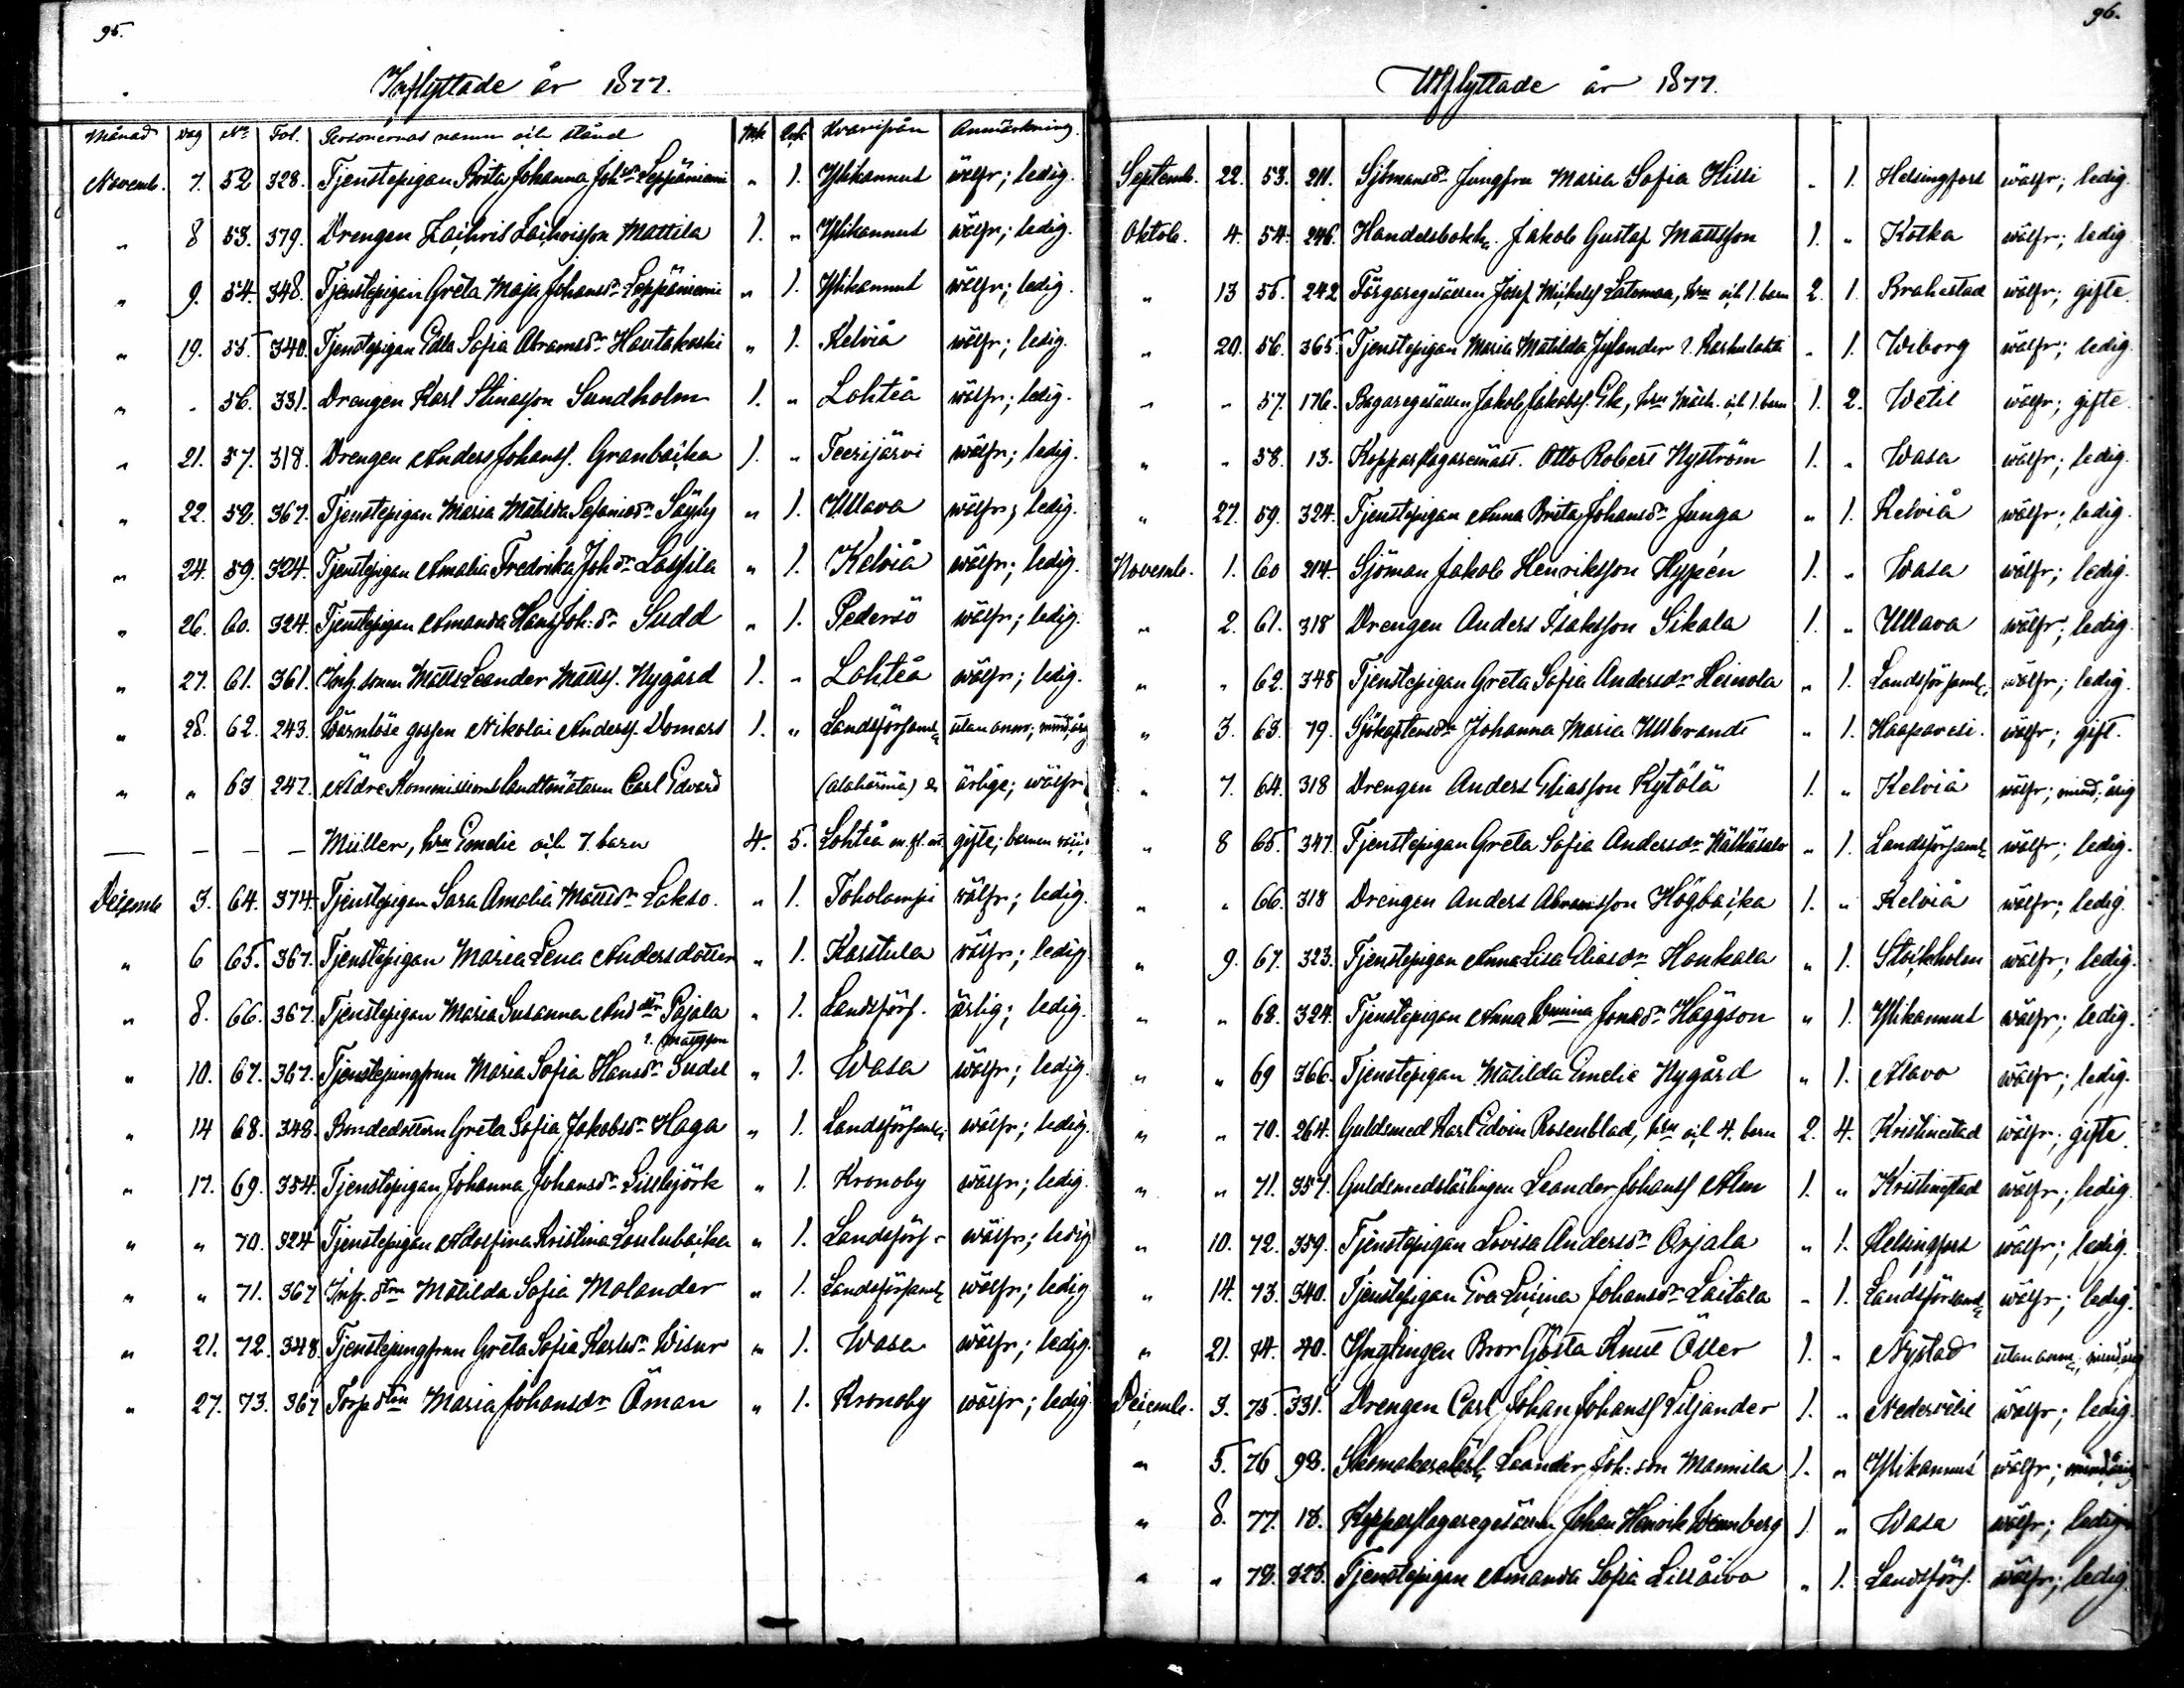 95.
Inflyttade år 1877.
Månad Dag No. Fol. Personernas namn och stånd Mk. Qvk. Hvarifrån Anmärkning.
Novemb. 7. 52. 328. Tjenstepigan Brita Johanna Joh.dr Leppäniemi " 1. Ylikannus wälfr; ledig.
" 8 53. 379. Drengen Zachris Zachrisson Mattila 1. " Ylikannus wälfr; ledig.
" 9. 54. 348. Tjenstepigan Greta Maja Johansdr Leppäniemi " 1. Ylikannus wälfr; ledig.
" 19. 55. 340. Tjenstepigan Edla Sofia Abramsdr Hautakoski " 1. Kelviå wälfr; ledig.
" " 56. 331. Drengen Karl Stinasson Sundholm 1. " Lohteå wälfr; ledig.
" 21. 57. 318. Drengen Anders Johanss. Granbacka 1. " Teerijärvi wälfr; ledig.
" 22. 58. 367. Tjenstepigan Maria Matilda Sefaniasdr Säyly " 1. Ullava wälfr; ledig.
" 24. 59. 324. Tjenstepigan Amalia Fredrika Joh.dr Lassila " 1. Kelviå wälfr; ledig.
" 26. 60. 324. Tjenstepigan Amanda Hans Joh:dr Sudd " 1. Pedersö wälfr; ledig.
" 27. 61. 361. Inh. sonen Matts Leander Mattss. Nygård 1. " Lohteå wälfr; ledig.
" 28. 62. 243. Wärnlöse gossen Nikolai Anderss. Domars 1. " Landsförsaml. utan anm; mind.årig
" " 63 247. Äldre Kommissionslandtmätaren Carl Edvard (Alahärmä) & ärlige; wälfr;
— — — — Müller, hru Emelie och 7 barn 4. 5. Lohteå gifte; barnen
Decemb 3. 64. 374. Tjenstepigan Sara Amalia Mattsdr Lakso. " 1. Toholampi wälfr; ledig.
" 6 65. 367. Tjenstepigan Maria Lena Andersdotter " 1. Karstula wälfr; ledig
" 8. 66. 367. Tjenstepigan Maria Susanna And.dtr Pajala " 1. Landsförs. ärlig; ledig.
" 10. 67. 367. Tjenstejungfrun Maria Sofia Hansdr Sudd l. Mattsson " 1. Wasa wälfr; ledig.
" 14 68. 348. Bondedottern Greta Sofia Jakobsdr Haga " 1. Landsförsaml. wälfr; ledig.
" 17. 69. 354. Tjenstepigan Johanna Johansdr Lillbjörk " 1. Kronoby wälfr; ledig.
" " 70. 324 Tjenstepigan Adolfina Kristina Loulubacka " 1. Landsförs. wälfr; ledig
" " 71. 367 Inh. dtrn Matilda Sofia Molander " 1. Landsförsaml. wälfr; ledig
" 21. 72. 348. Tjenstejungfrun Greta Sofia Karlsdr Wisur " 1. Wasa wälfr; ledig.
" 27. 73. 367 Torp.dtrn Maria Johansdr Öman " 1. Kronoby wälfr; ledig.
96.
Utflyttade år 1877.
Septemb. 22. 53. 211. Sjömansdr Jungfru Maria Sofia Hilli " 1. Helsingfors wälfr; ledig.
Oktob. 4. 54. 246. Handelsbokh. Jakob Gustaf Mattsson 1. " Kotka wälfr; ledig
" 13 55. 242 Färgaregesällen Josef Michelss. Latomaa, hru och 1 barn 2. 1. Brahestad wälfr; gifte.
" 20. 56. 365. Tjenstepigan Maria Matilda Jylander l. Karhulahti " 1. Wiborg wälfr; ledig.
" " 57. 176. Bagaregesällen Jakob Jakobss. Ek, hru och 1 barn 1. 2. Wetil wälfr; gifte.
" " 58. 13. Kopparslagaremäst. Otto Robert Nyström 1. " Wasa wälfr; ledig.
" 27. 59. 324. Tjenstepigan Anna Brita Johansdr Junga " 1. Kelviå wälfr; ledig.
Novemb. 1. 60 214. Sjöman Jakob Henriksson Hyppén 1. " Wasa wälfr; ledig.
" 2. 61. 318 Drengen Anders Isaksson Sikala 1. " Ullava wälfr; ledig.
" " 62. 348 Tjenstepigan Greta Sofia Andersdr Heinola " 1. Landsförsaml. wälfr; ledig.
" 3. 63. 79. Sjökaptensdr Johanna Maria Ullbrandt " 1. Haapavesi. wälfr; gift.
" 7. 64. 318 Drengen Anders Eliasson Kytölä 1. " Kelviå wälfr; mind.årig
" 8 65. 347. Tjenstepigan Greta Sofia Andersdr Hälkäsalo " 1. Landsförsaml. wälfr; ledig.
" " 66. 318 Drengen Anders Abramsson Högbacka 1. " Kelviå wälfr; ledig.
" 9. 67. 323. Tjenstepigan Anna Lisa Eliasdr Honkala " 1. Stockholm wälfr; ledig.
" " 68. 324. Tjenstepigan Anna Wmina Jonasdr Häggson " 1. Ylikannus wälfr; ledig.
" " 69 366. Tjenstepigan Matilda Emelie Nygård " 1. Alavo wälfr; ledig.
" " 70. 264. Guldsmed Karl Edvin Rosenblad, hru och 4. barn 2. 4. Kristinestad wälfr; gifte.
" " 71. 357. Guldsmedslärlingen Leander Johanss Alm 1. " Kristinestad wälfr; ledig.
" 10. 72. 359. Tjenstepigan Lovisa Andersdr Orjala " 1. Helsingfors wälfr; ledig.
" 14. 73. 340. Tjenstepigan Eva Lusina Johansdr Laitala " 1. Landsförsaml. wälfr; ledig.
" 21. 74. 40. Ynglingen Bror Gösta Knut Öller 1. " Nystad utan anm; mind.årig
Decemb. 3. 75. 331. Drengen Carl Johan Johanss Liljander 1. " Nedervetil wälfr; ledig.
" 5. 76 98. Skomakarelärl. Leander Joh:son Mannila 1. " Ylikannus wälfr; mind.årig
" 8. 77. 18. Kopparslagaregesällen Johan Henrik Wennberg 1. " Wasa wälfr; ledig
" " 78. 323. Tjenstepigan Amanda Sofia Lillåivo " 1. Landsförs. wälfr; ledig.